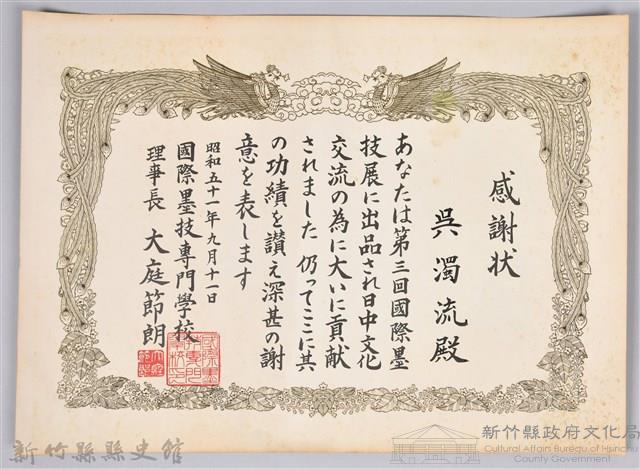 感謝状
呉濁流殿
あなたは第三回國際墨
技展に出品され日中文化
交流の為に大いに貢献
されました 仍ってここに其
の功績を讃え深甚の謝
意を表します
昭和五十一年九月十一日
國際墨技專門學校
理事長 大庭節朗
新竹縣縣史館
新竹縣政府文化局
Cultural Affairs Bureau of Hsinchu
County Government